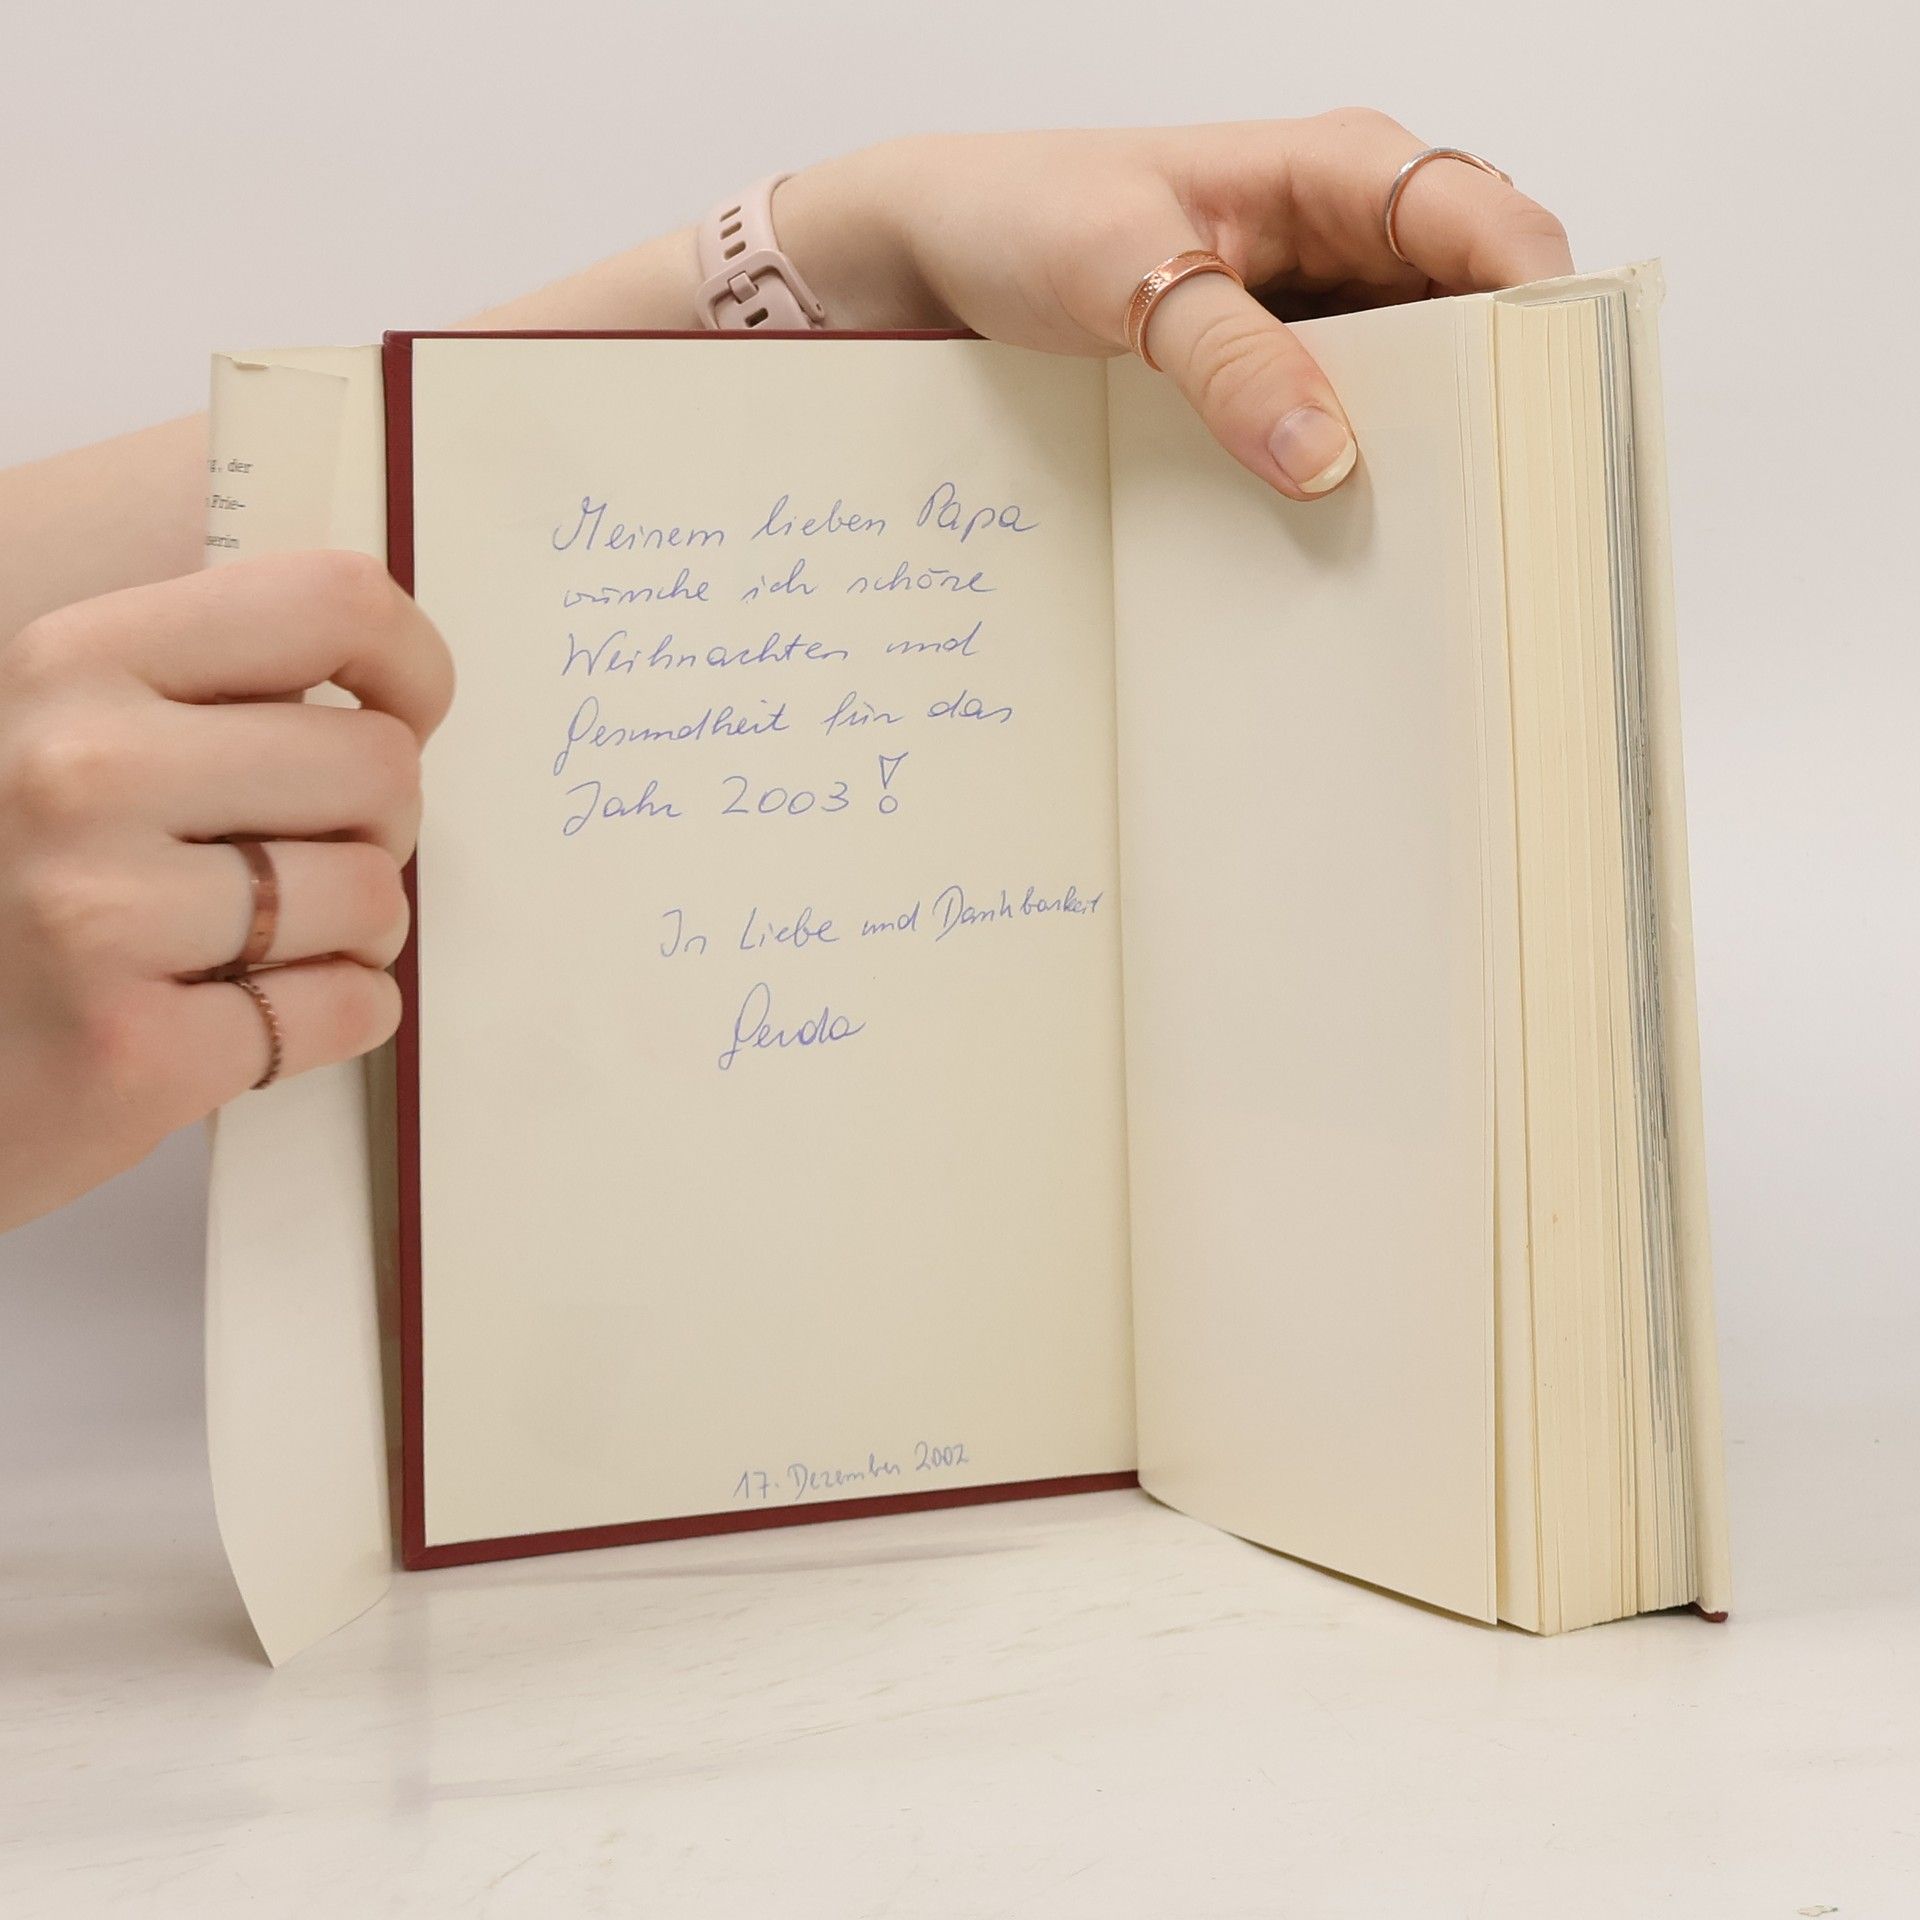 g. der
Frie-
serin
Meinem lieben Papa
wünsche ich schöne
Weihnachten und
Gesundheit für das
Jahr 2003!
In Liebe und Dankbarkeit
Gerda
17. Dezember 2002